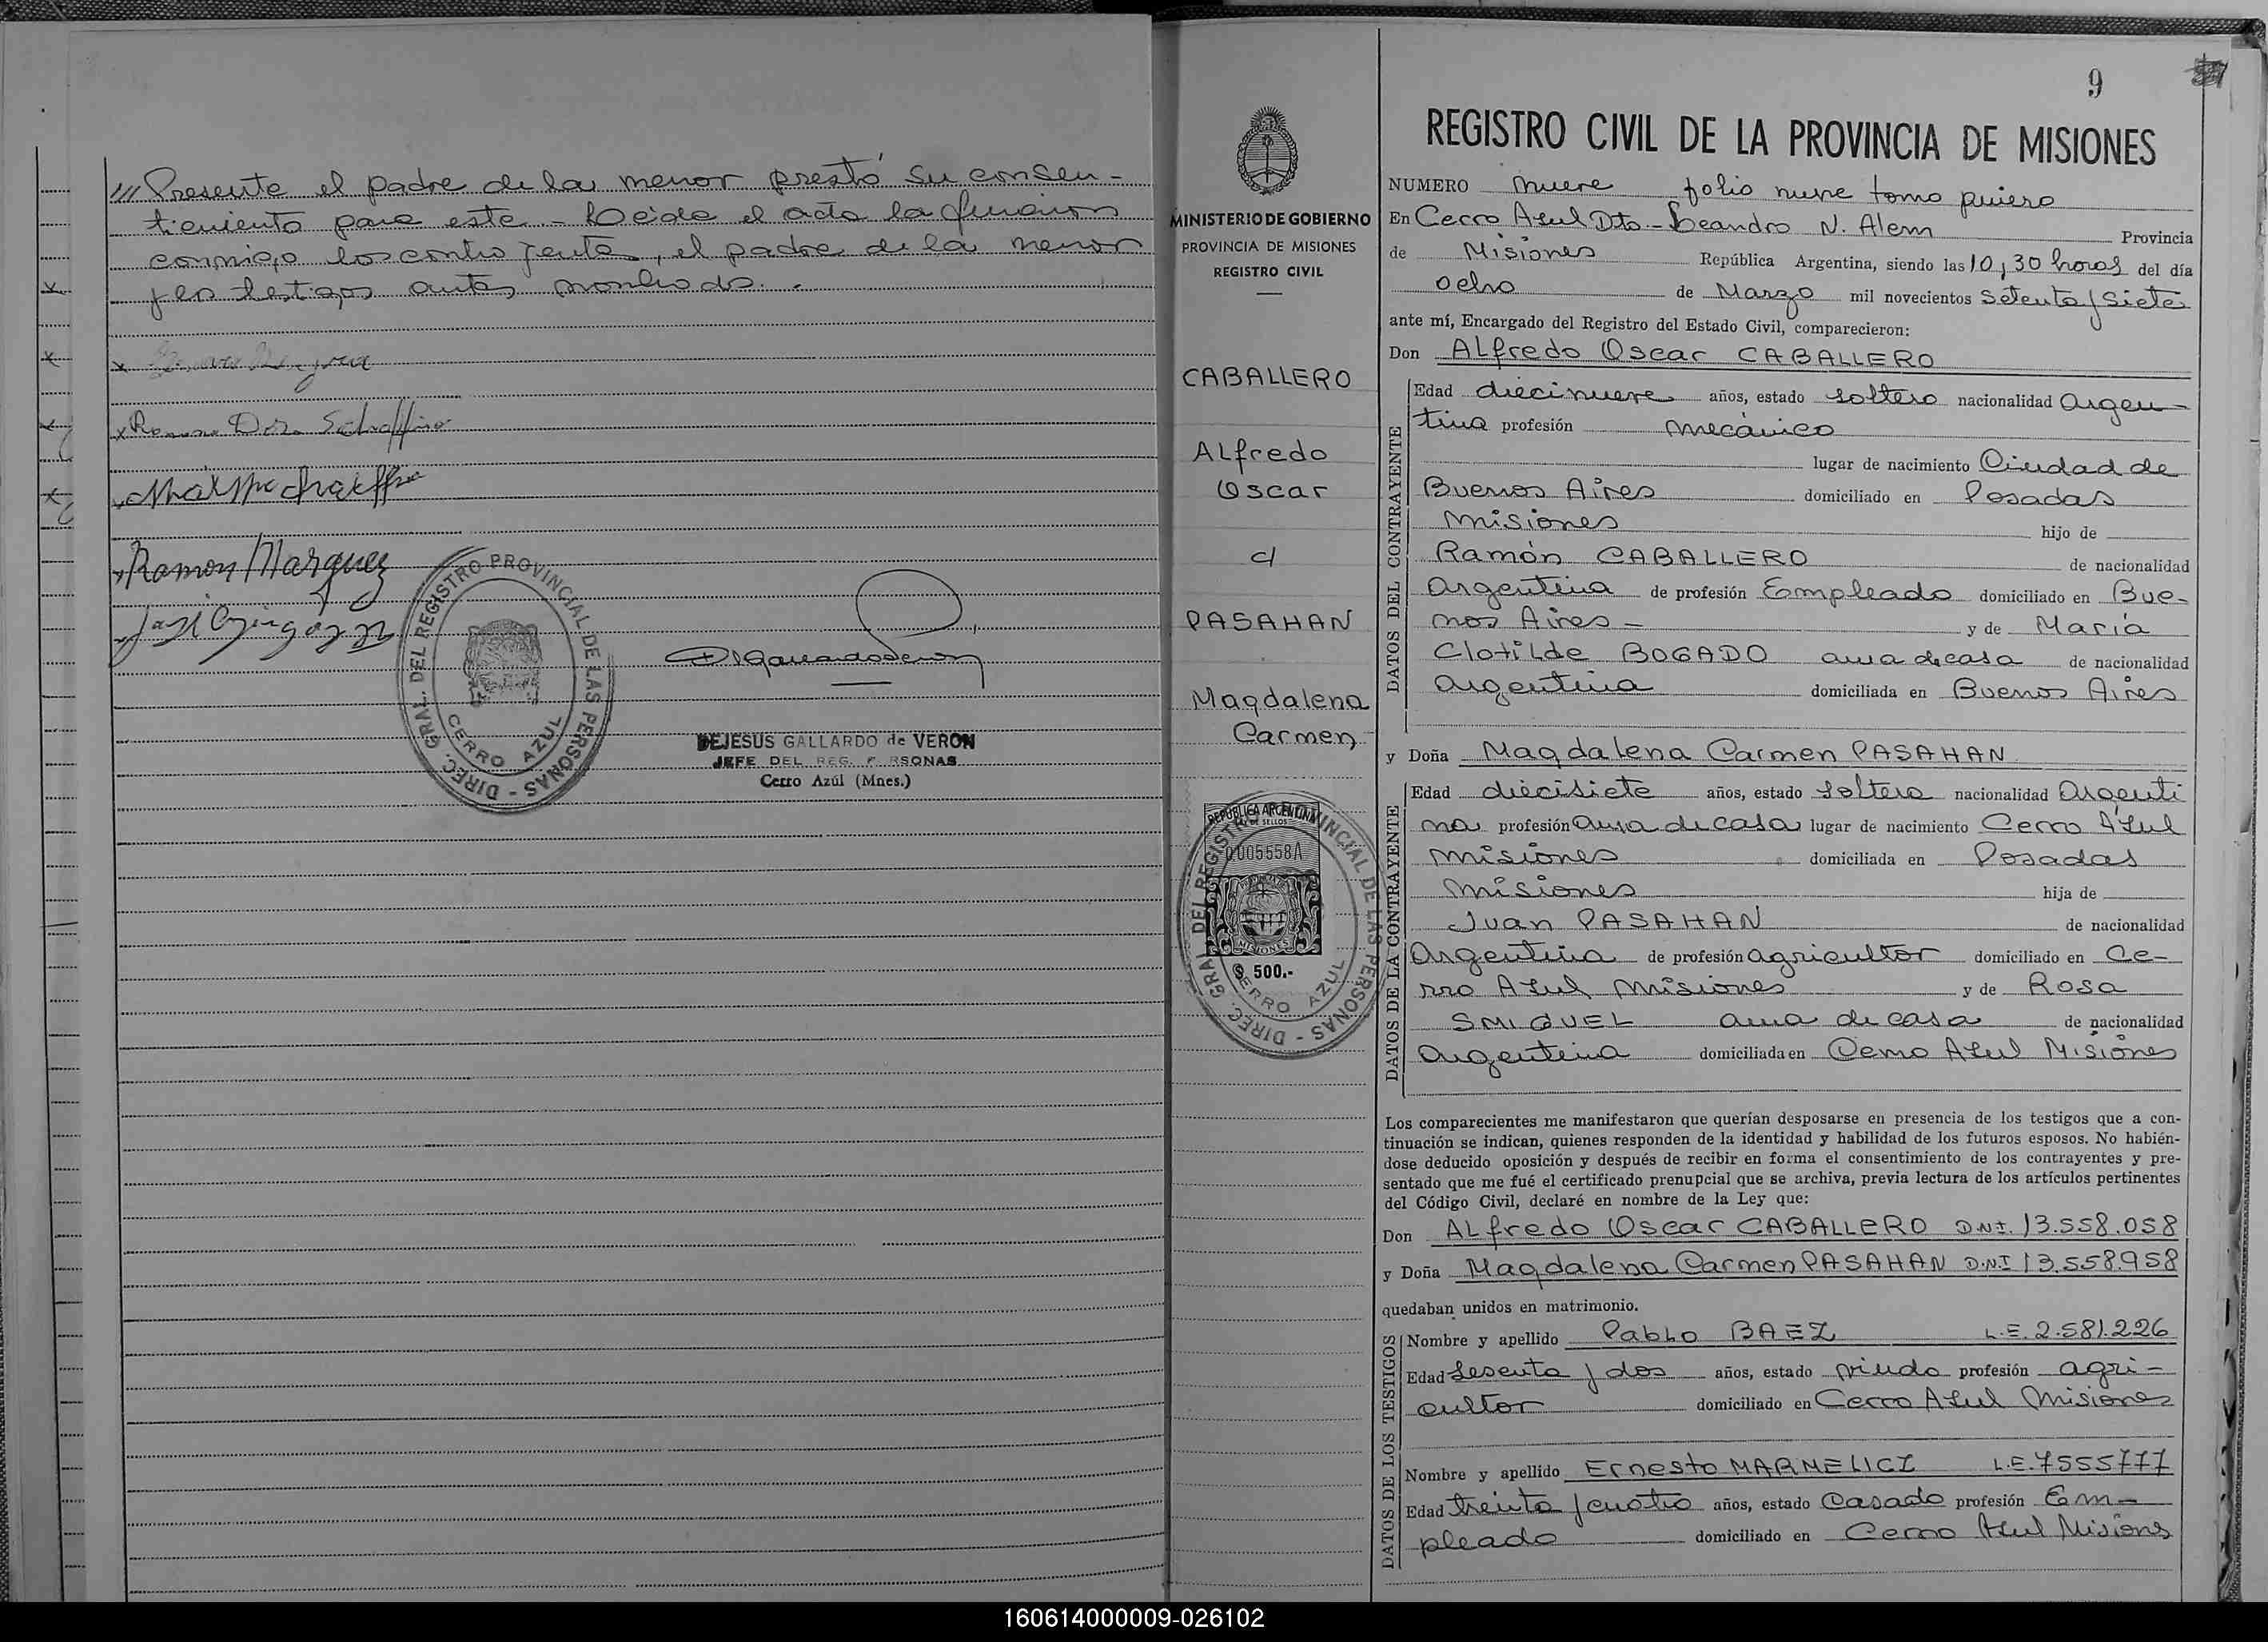 /// Presente el padre de la menor prestó su consen-
timiento para este.- Leida el acta la firmaron
conmigo los contrayentes, el padre de la menor
y los testigos antes nombrado.-
x
x Ramona Dora Schaffino
x
x Ramon Marquez
x
DIREC. GRAL. DEL REGISTRO PROVINCIAL DE LAS PERSONAS -
CERRO AZUL
DEJESUS GALLARDO de VERON
JEFE DEL REG. P RSONAS
Cerro Azúl (Mnes.)
MINISTERIO DE GOBIERNO
PROVINCIA DE MISIONES
REGISTRO CIVIL
CABALLERO
ALfredo
Oscar
c/
PASAHAN
Magdalena
Carmen
REPUBLICA ARGENTINA
LEY DE SELLOS
0005558A
MISIONES
$ 500.-
DIREC. GRAL. DEL REGISTRO PROVINCIAL DE LAS PERSONAS -
CERRO AZUL
9
REGISTRO CIVIL DE LA PROVINCIA DE MISIONES
NUMERO nueve folio nueve tomo primero
En Cerro Azul Dto.- Leandro N. Alem Provincia
de Misiones República Argentina, siendo las 10,30 horas del día
ocho de Marzo mil novecientos setenta y siete
ante mí, Encargado del Registro del Estado Civil, comparecieron:
Don ALfredo Oscar CABALLERO
DATOS DEL CONTRAYENTE
Edad diecinueve años, estado soltero nacionalidad argen-
tina profesión mecánico
lugar de nacimiento Ciudad de
Buenos Aires domiciliado en Posadas
Misiones hijo de
Ramón CABALLERO de nacionalidad
argentina de profesión Empleado domiciliado en Bue-
nos Aires - y de María
Clotilde BOGADO ama de casa de nacionalidad
argentina domiciliada en Buenos Aires
y Doña Magdalena Carmen PASAHAN
DATOS DE LA CONTRAYENTE
Edad diecisiete años, estado soltera nacionalidad Argenti
na profesión ama de casa lugar de nacimiento Cerro Azul
Misiones domiciliada en Posadas
Misiones hija de
Juan PASAHAN de nacionalidad
Argentina de profesión agricultor domiciliado en Ce-
rro Azul Misiones y de Rosa
SMIGUEL ama de casa de nacionalidad
argentina domiciliada en Cerro Azul Misiones
Los comparecientes me manifestaron que querían desposarse en presencia de los testigos que a con-
tinuación se indican, quienes responden de la identidad y habilidad de los futuros esposos. No habién-
dose deducido oposición y después de recibir en forma el consentimiento de los contrayentes y pre-
sentado que me fué el certificado prenupcial que se archiva, previa lectura de los artículos pertinentes
del Código Civil, declaré en nombre de la Ley que:
Don ALfredo Oscar CABALLERO D.N.I. 13.558.058
y Doña Magdalena Carmen PASAHAN D.N.I 13.558.958
quedaban unidos en matrimonio.
DATOS DE LOS TESTIGOS
Nombre y apellido PabLo BAEZ L.E. 2.581.226
Edad sesenta y dos años, estado viudo profesión agri-
cultor domiciliado en Cerro Azul Misiones
Nombre y apellido Ernesto MARMELICZ L.E. 7555777
Edad treinta y cuatro años, estado Casado profesión Em-
pleado domiciliado en Cerro Azul Misiones
160614000009-026102